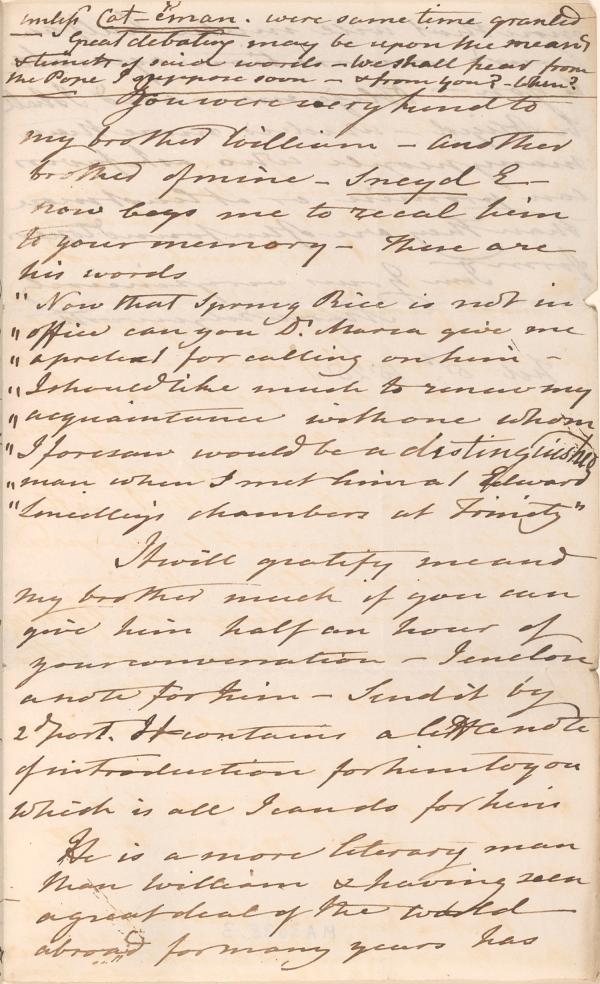 unless Cat-eman. were some time granted
Great debating may be upon the means
& times of said words - We shall hear from
the Pope I suppose soon - & from you? - When?
You were very kind to
my brother William - another
brother of mine - Sneyd E -
now begs me to recal him
to your memory - These are
his words
"Now that Spring Rice is not in
"office can you Dr. Maria give me
"a pretext for calling on him -
"I should like much to renew my
"acquaintance with one whom
"I foresaw would be a distinguished
"man when I met him at Edward
"Smedley's chambers at Trinity"
It will gratify me and
my brother much if you can
give him half an hour of
your conversation - I enclose
a note for him - Send it by
2d post. It contains a little note
of introduction for him to you
which is all I can do for him
He is a more literary man
than William & having seen
a great deal of the world
abroad for many years has